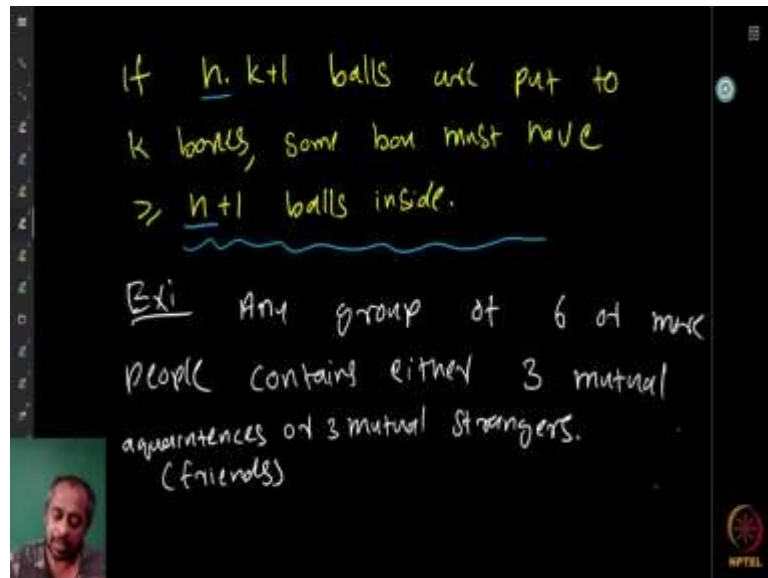 If n. k+1 balls are put to
k boxes, some box must have
≥ n+1 balls inside.
Ex: Any group of 6 or more
people contains either 3 mutual
aquaintences or 3 mutual strangers.
(friends)
NPTEL